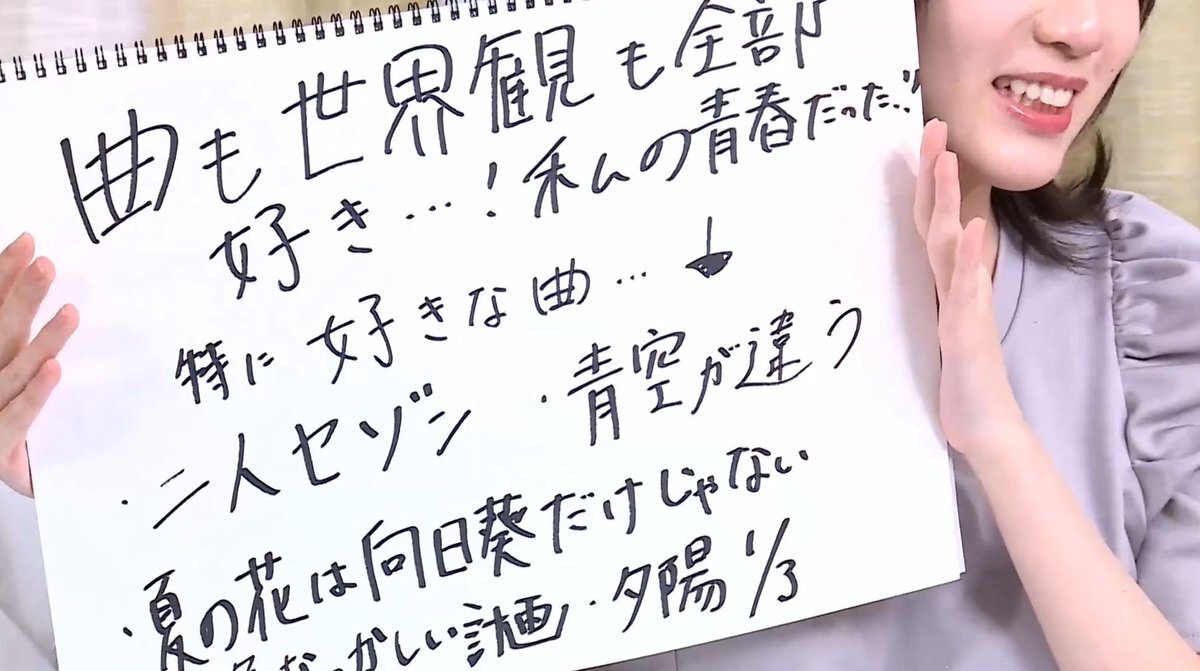 曲も世界観も全部
好き…!私の青春だった…"
特に好きな曲…
・二人セゾン ・青空が違う
・夏の花は向日葵だけじゃない
しい計画 ・夕陽1/3